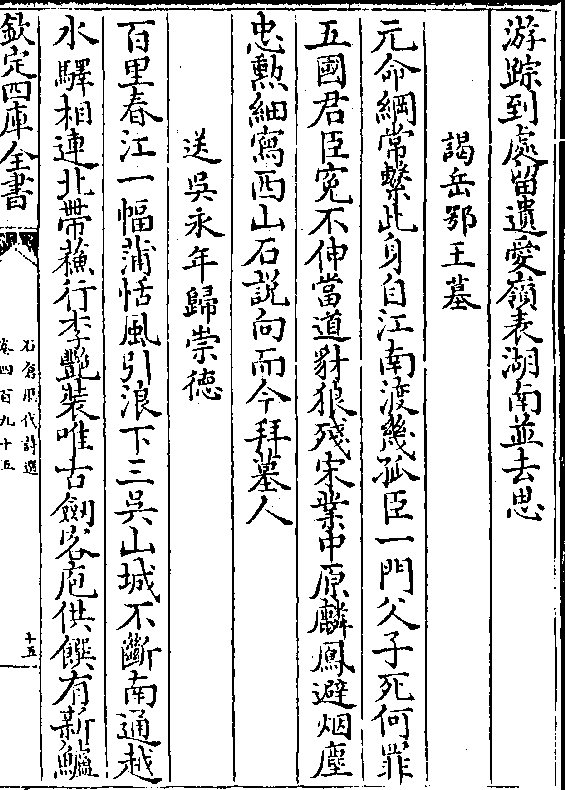 游踪到處留遺愛嶺表湖南並去思
謁岳鄂王墓
元命綱常繫此身自江南渡幾孤臣一門父子死何罪
五國君臣寃不伸當道豺狼殘宋業中原麟鳳避烟塵
忠勲細寫西山石説向而今拜墓人
送吳永年歸崇德
百里春江一幅蒲恬風引浪下三吳山城不斷南通越
水驛相連北帶蘓行李艶裝唯古劒客庖供饌有新鱸
欽定四庫全書
石倉歷代詩選
卷四百九十五
十五